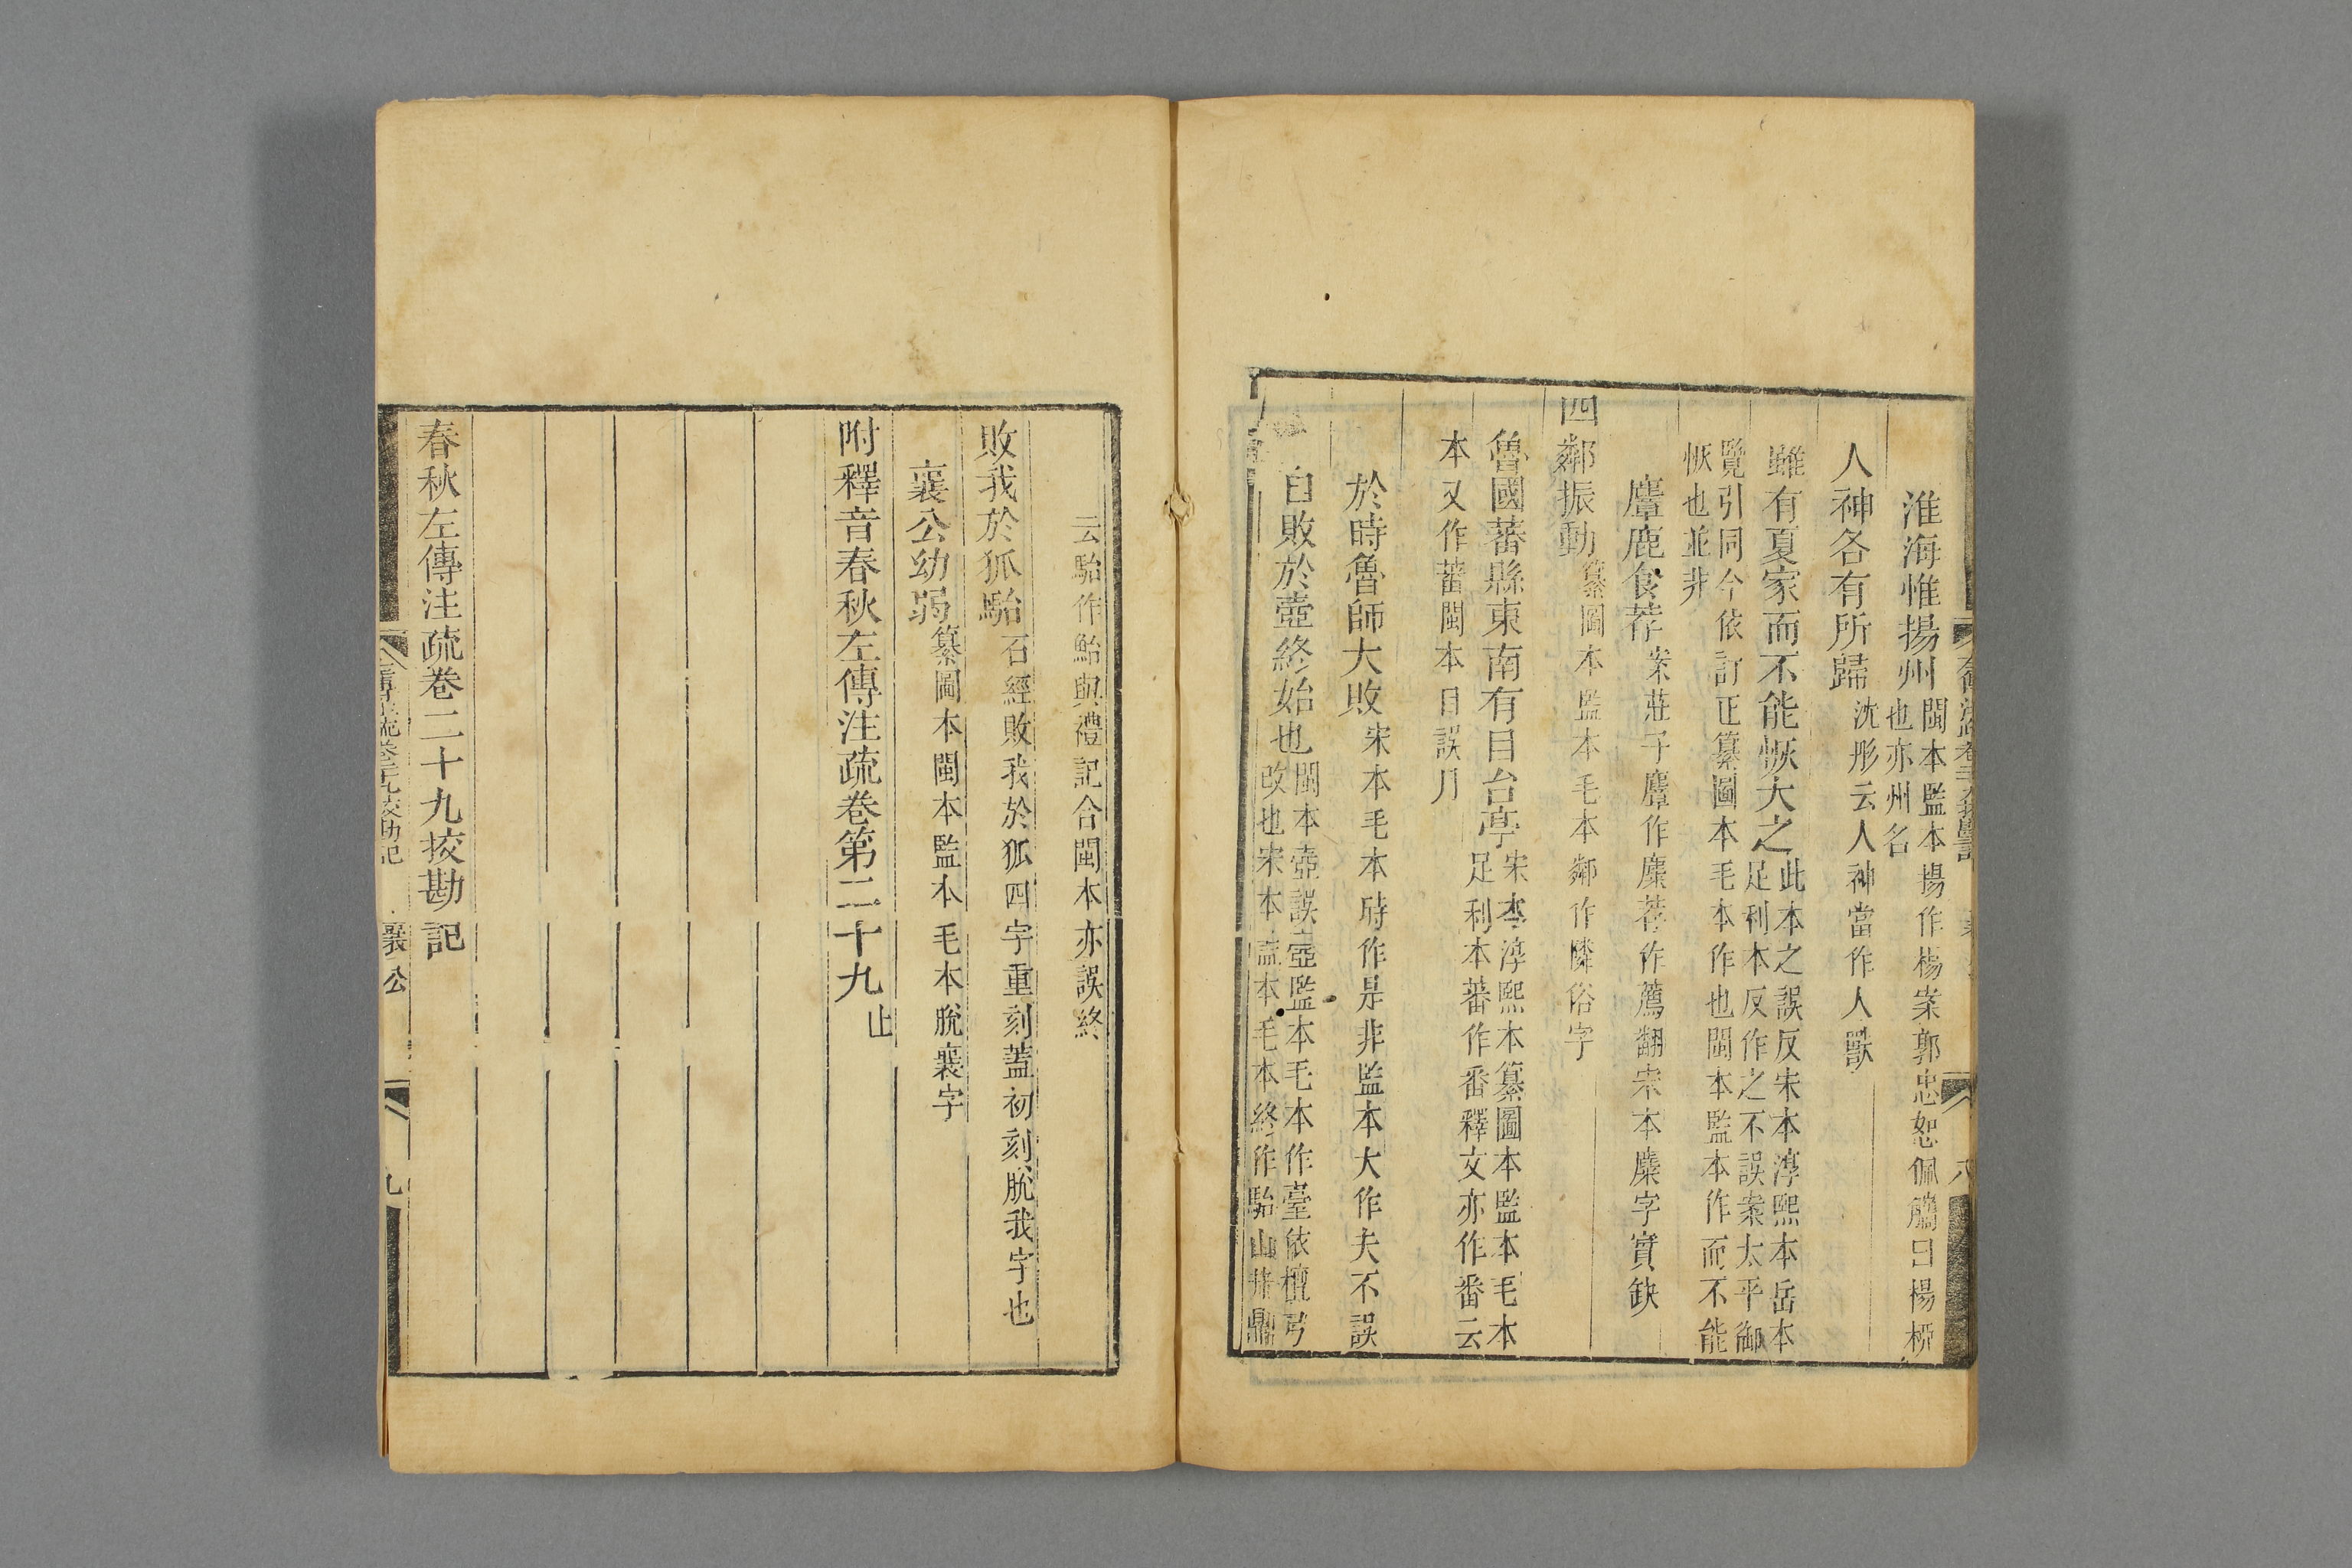 淮海惟揚州閩本監本揚作楊案郭忠恕佩觿曰楊柳也亦州名
人神各有所歸沈彤云人神當作人獸
雖有夏家而不能恢大之此本之誤反宋本淳熙本岳本足利本反作之不誤案太平御
覽引同今依訂正纂圖本毛本作也閩本監本作而不能恢也並非
麞鹿食荐案莊子麞作麋荐作薦翻宋本麋字實缺
四鄰振動纂圖本監本毛本鄰作隣俗字
魯國蕃縣東南有目台亭宋本淳熙本纂圖本監本毛本足利本蕃作番釋文亦作番云
本又作蕃閩本目誤月
於時魯師大敗宋本毛本時作是非監本大作夫不誤
自敗於壺終始也閩本壺誤壼監本毛本作臺依檀弓改也宋本監本毛本終作駘山井鼎
云駘作鮐與禮記合閩本亦誤終
敗我於狐駘石經敗我於狐四字重刻蓋初刻脫我字也
襄公幼弱纂圖本閩本監本毛本脫襄字
附釋音春秋左傳注疏卷第二十九止
春秋左傳注疏卷二十九挍勘記
襄公